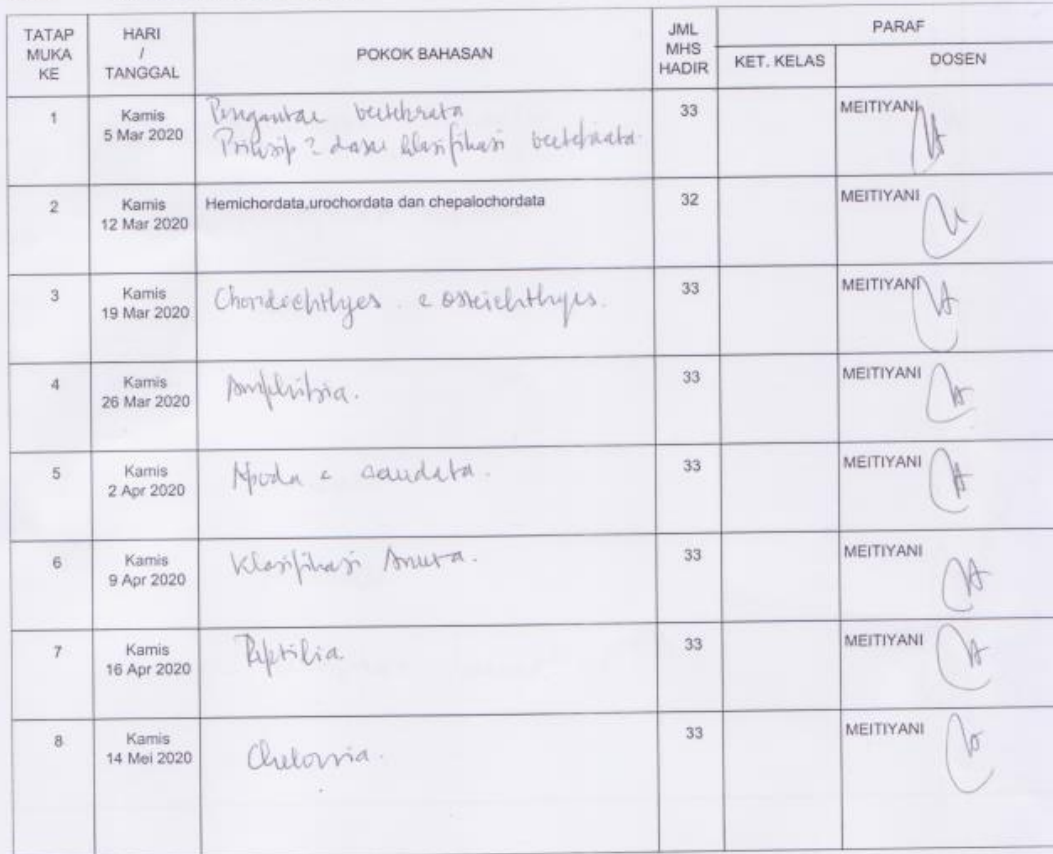 TATAP MUKA KE HARI / TANGGAL POKOK BAHASAN JML MHS HADIR PARAF
KET. KELAS DOSEN
1 Kamis 5 Mar 2020 Pengantar vertebrata 33 MEITIYANI
Prinsip2 dasar klasifikasi vertebrata.
2 Kamis 12 Mar 2020 Hemichordata,urochordata dan chepalochordata 32 MEITIYANI
3 Kamis 19 Mar 2020 Chondrichthyes. & osteichthyes. 33 MEITIYANI
4 Kamis 26 Mar 2020 Amphibia. 33 MEITIYANI
5 Kamis 2 Apr 2020 Apoda & caudata. 33 MEITIYANI
6 Kamis 9 Apr 2020 Klasifikasi Anura. 33 MEITIYANI
7 Kamis 16 Apr 2020 Reptilia 33 MEITIYANI
8 Kamis 14 Mei 2020 Chelonia. 33 MEITIYANI